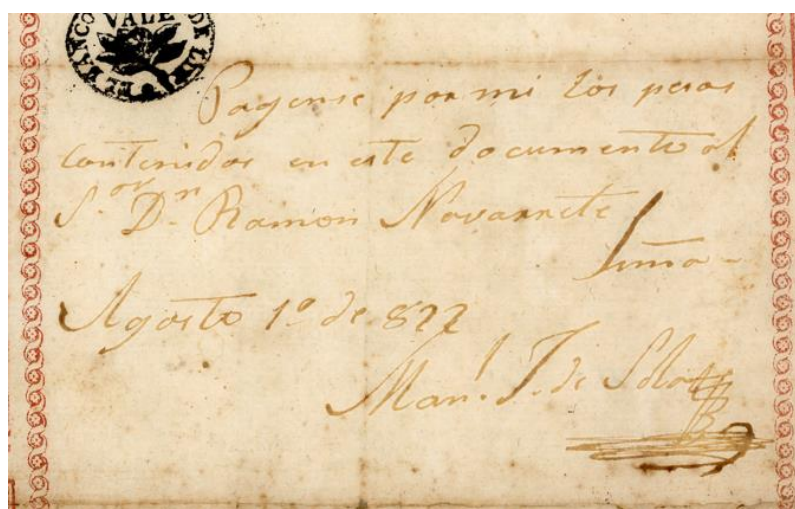 VALE
EL BANCO DE LIMA
Paguense por mi los pesos
contenidos en este documento al
S.or D.n Ramon Navarrete
Lima
Agosto 1º de 822
Man.l J. de